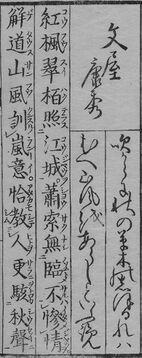 文屋康秀
吹からに秋の草木のしほるれハ
むへ山風をあらしといふ覧
紅楓翠柏照江城蕭索無臨不慘情
解道山風訓嵐意恰教人更駭秋聲